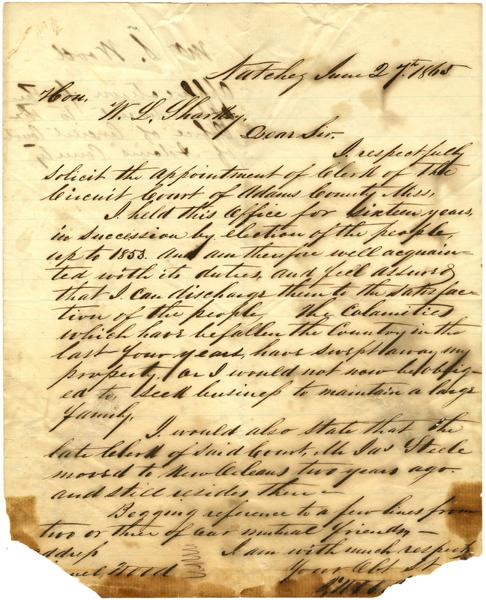 Natchez June 27th. 1865
Hon.
W. L. Sharkey,
Dear Sir.
I. respectfully
solicit the appointment of Clerk of the
Circuit Court of Adams County Miss,
I held this Office for sixteen years,
in succession by election of the people,
up to 1853. And am therefore well acquain-
ted with its duties, and feel assured
that I can discharge them to the satisfac-
tion of the people, The Calamities
which have befallen the Country in the
last four years, have swept away my
property, or I would not now be oblig-
ed to, seek business to maintain a large
family.
I. would also state that the
late Clerk of said Court, Mr Jas Steele
moved to New Orleans two years ago.
and still resides there—
Begging reference to a few lines from
two or three of our mutual friends,—
I am with much respect
Wood
Your Obt St